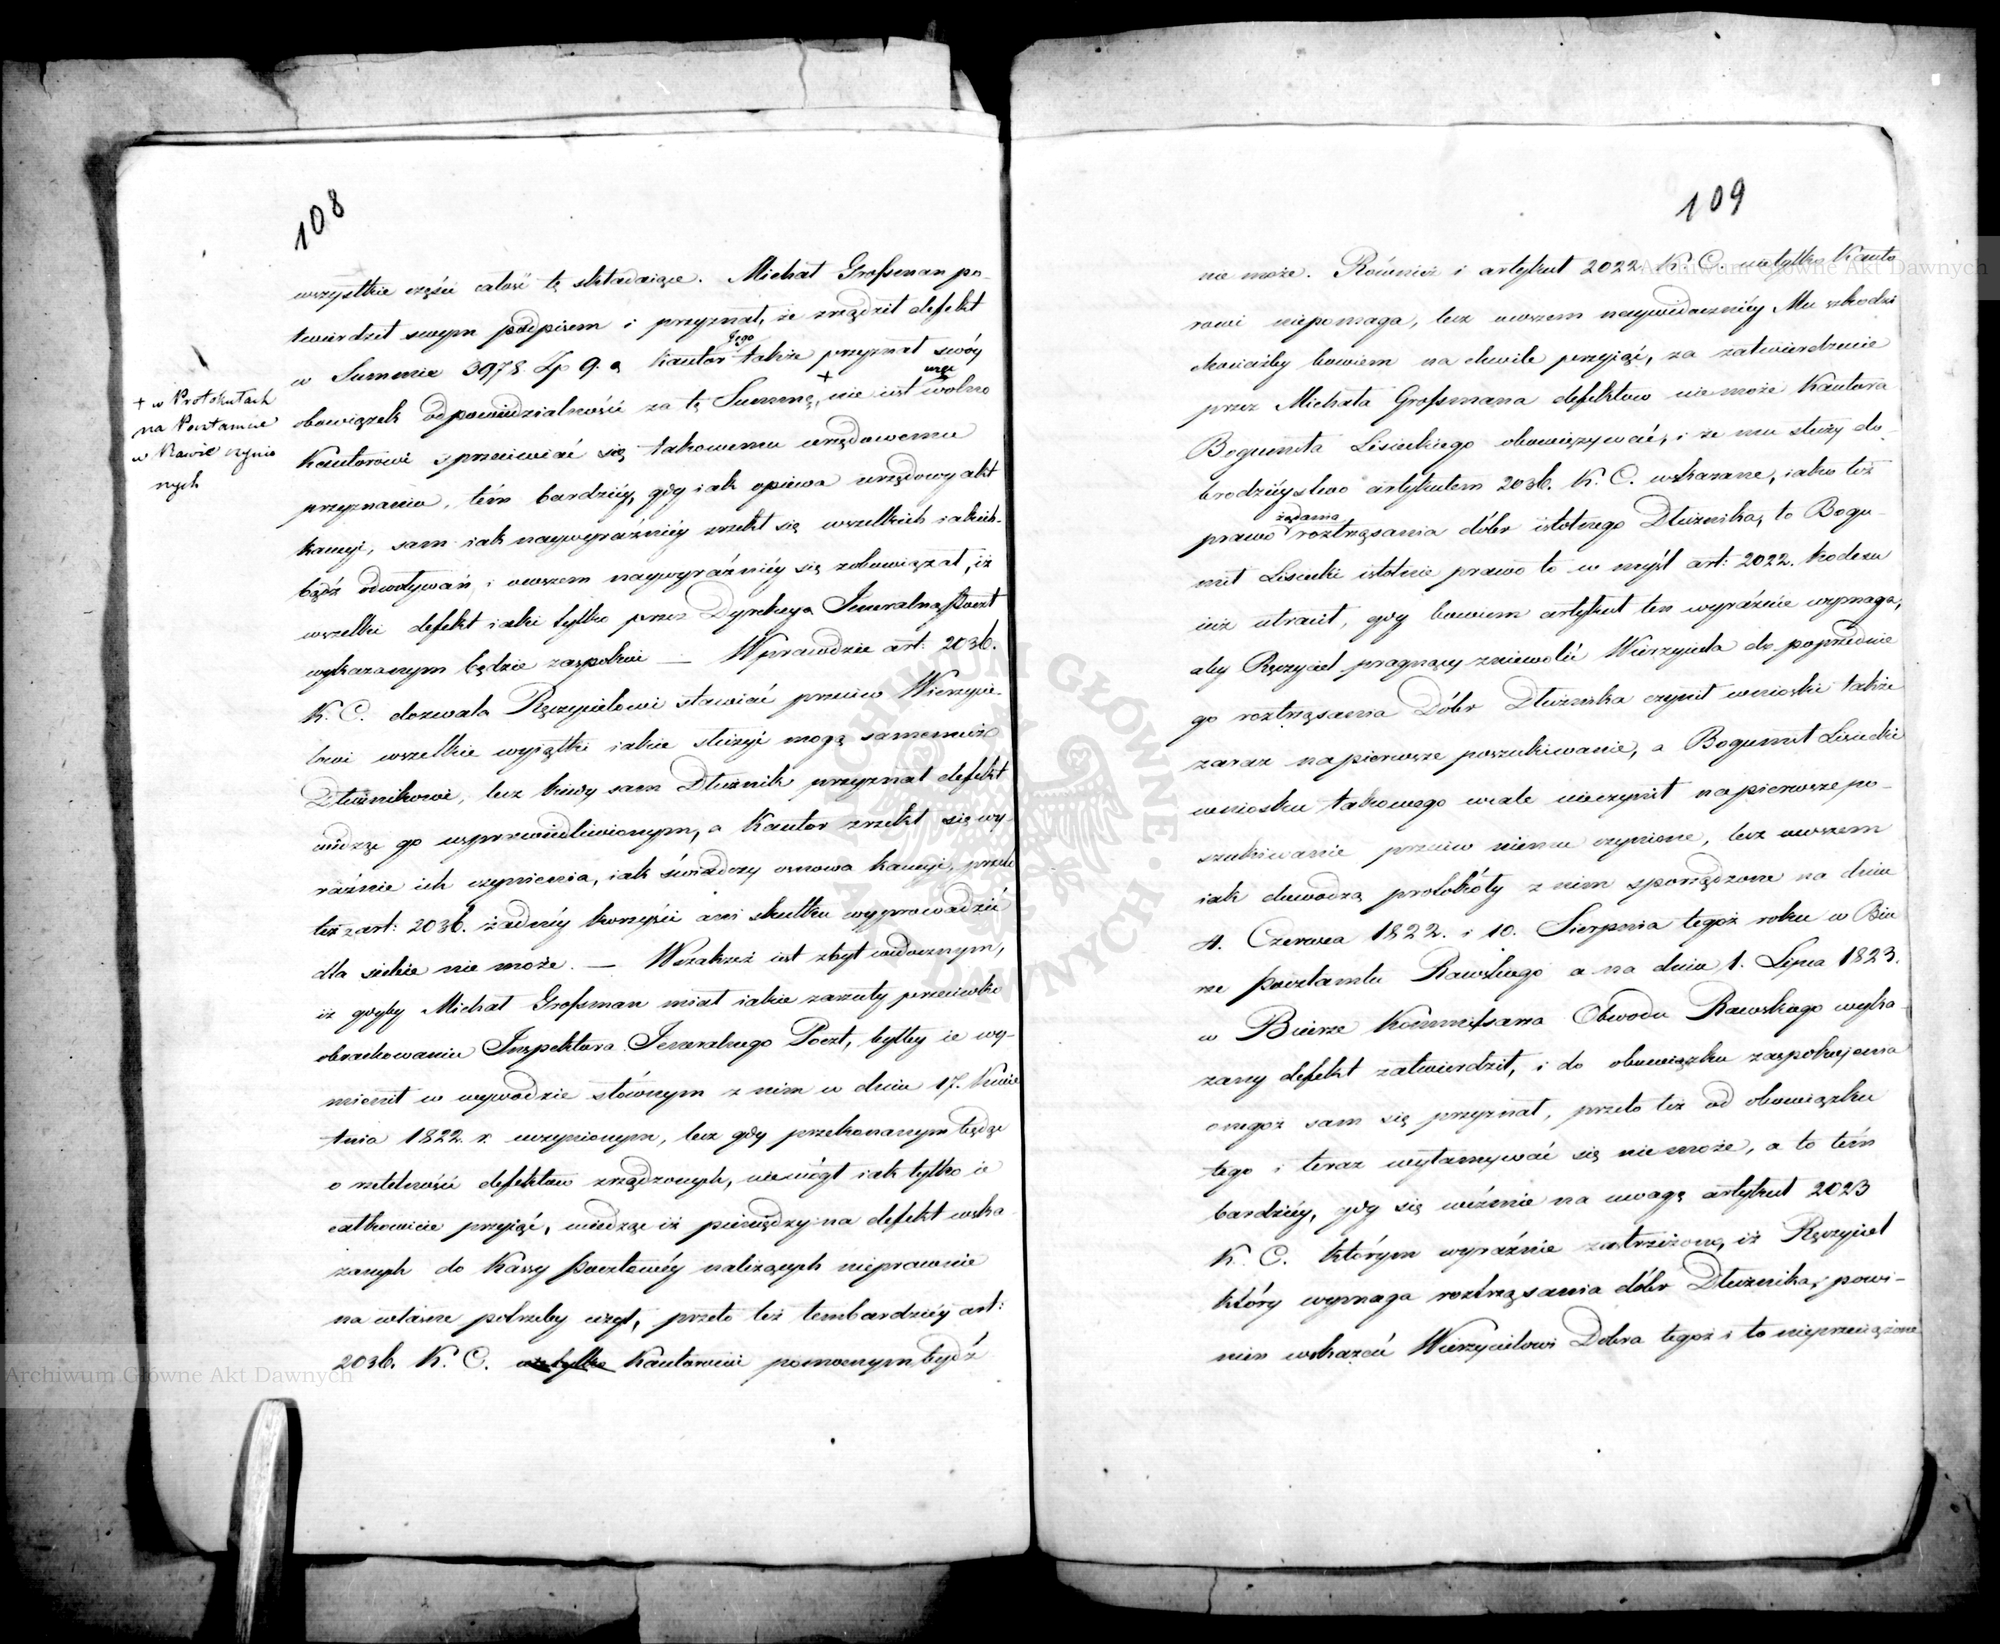 108
wszystkie części całość tę składaiące. Michał Grossman po-
twierdził swym podpisem i przyznał, że zrządził defekt
Jego
w Summie 3978 Zp 9. a Kautor także przyznał swóy
obowiązek odpowiedzialności za tę Summę, + nie iest wolno
+ w Protokułach
na Pocztamcie
w Rawie czynio
nych
Kautorowi sprzeciwiać się takowemu urzędowemu
przyznaniu, tém bardziéy, gdy iak opiewa urzędowy akt
kaucyi, sam iak naywyraźniéy zrzekł się wszelkich iakich-
bądź odwoływań i owszem naywyraźniéy się zobowiązał, iż
wszelki defekt iaki tylko przez Dyrekcyą Jeneralną Poczt
wykazanym będzie zaspokoi — Wprawdzie art: 2036.
K. C. dozwala Ręczycielowi stawiać przeciw Wierzycie-
lowi wszelkie wyiątki iakie służyć mogą samemuż
Dłużnikowi, lecz kiedy sam Dłużnik przyznał defekt
widząc go usprawiedliwionym, a Kautor zrzekł się wy-
raźnie ich czynienia, iak świadczy osnowa kaucyi, przeto
też z art: 2036. żadnéy korzyści ani skutku wyprowadzić
dla siebie nie może. — Wszakże iest zbyt widocznym,
iż gdyby Michał Grossman miał iakie zarzuty przeciwko
obrachowaniu Inspektora Jeneralnego Poczt, byłby ie wy-
mienił w wywodzie słownym z nim w dniu 17. Kwie
tnia 1822 r. uczynionym, lecz gdy przekonanym będąc
o rzetelności defektów zrządzonych, niemógł iak tylko ie
całkowicie przyiąć, widząc iż pieniędzy na defekt wska
zanych do Kassy Pocztowéy należących nieprawnie
na własne potrzeby użył, przeto też tembardziéy art:
2036. K. C. Kautorowi pomocnym bydź
109
nie może. Również i artykuł 2022 K. C. nietylko Kauto
rowi niepomaga, lecz owszem naywidoczniéy Mu szkodzi
chociażby bowiem na chwilę przyiąć, że zatwierdzenie
przez Michała Grossmana defektów nie może Kautora
Bogumiła Lisieckiego obowiązywać, i że mu służy do-
brodzieystwo artykułem 2036. K. C. wskazane, iako też
żądania
prawo roztrząsania dóbr istotnego Dłużnika, to Bogu-
mił Lisiecki istotnie prawo to w myśl art: 2022. kodexu
iuż utracił, gdy bowiem artykuł ten wyraźnie wymaga,
aby Ręczyciel pragnący zniewolić Wierzyciela do poprzednie
go roztrząsania Dóbr Dłużnika czynił wnioski także
zaraz na pierwsze poszukiwanie, a Bogumił Lisiecki
wniosku takowego wcale nieczynił na pierwsze po-
szukiwanie przeciw niemu czynione, lecz owszem
iak dowodzą protokóły z nim sporządzone na dniu
4. Czerwca 1822. i 10. Sierpnia tegoż roku w Biu
rze Pocztamtu Rawskiego a na dniu 1. Lipca 1823.
w Biurze Kommissarza Obwodu Rawskiego wyka-
zany defekt zatwierdził, i do obowiązku zaspokojenia
onegoż sam się przyznał, przeto też od obowiązku
tego i teraz wyłamywać się nie może, a to tém
bardziéy, gdy się weźmie na uwagę artykuł 2023
K. C. którym wyraźnie zastrzeżono, iż Ręczyciel
który wymaga roztrząsania dóbr Dłużnika, powi-
nien wskazać Wierzycielowi Dobra tegoż i to nieprzeciążone
Archiwum Główne Akt Dawnych
Archiwum Główne Akt Dawnych
ARCHIWUM GŁÓWNE AKT DAWNYCH